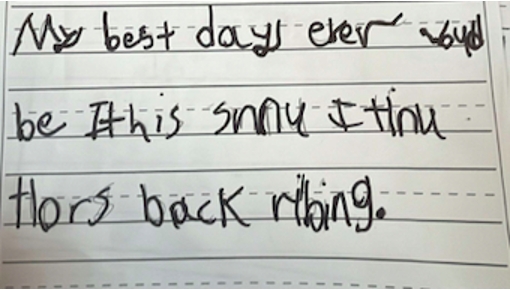 My best days ever woud
be Ithis snny I tinu
tlors back ribing.